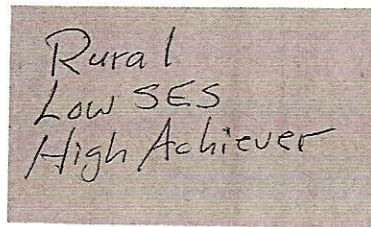 Rural
Low SES
High Achiever